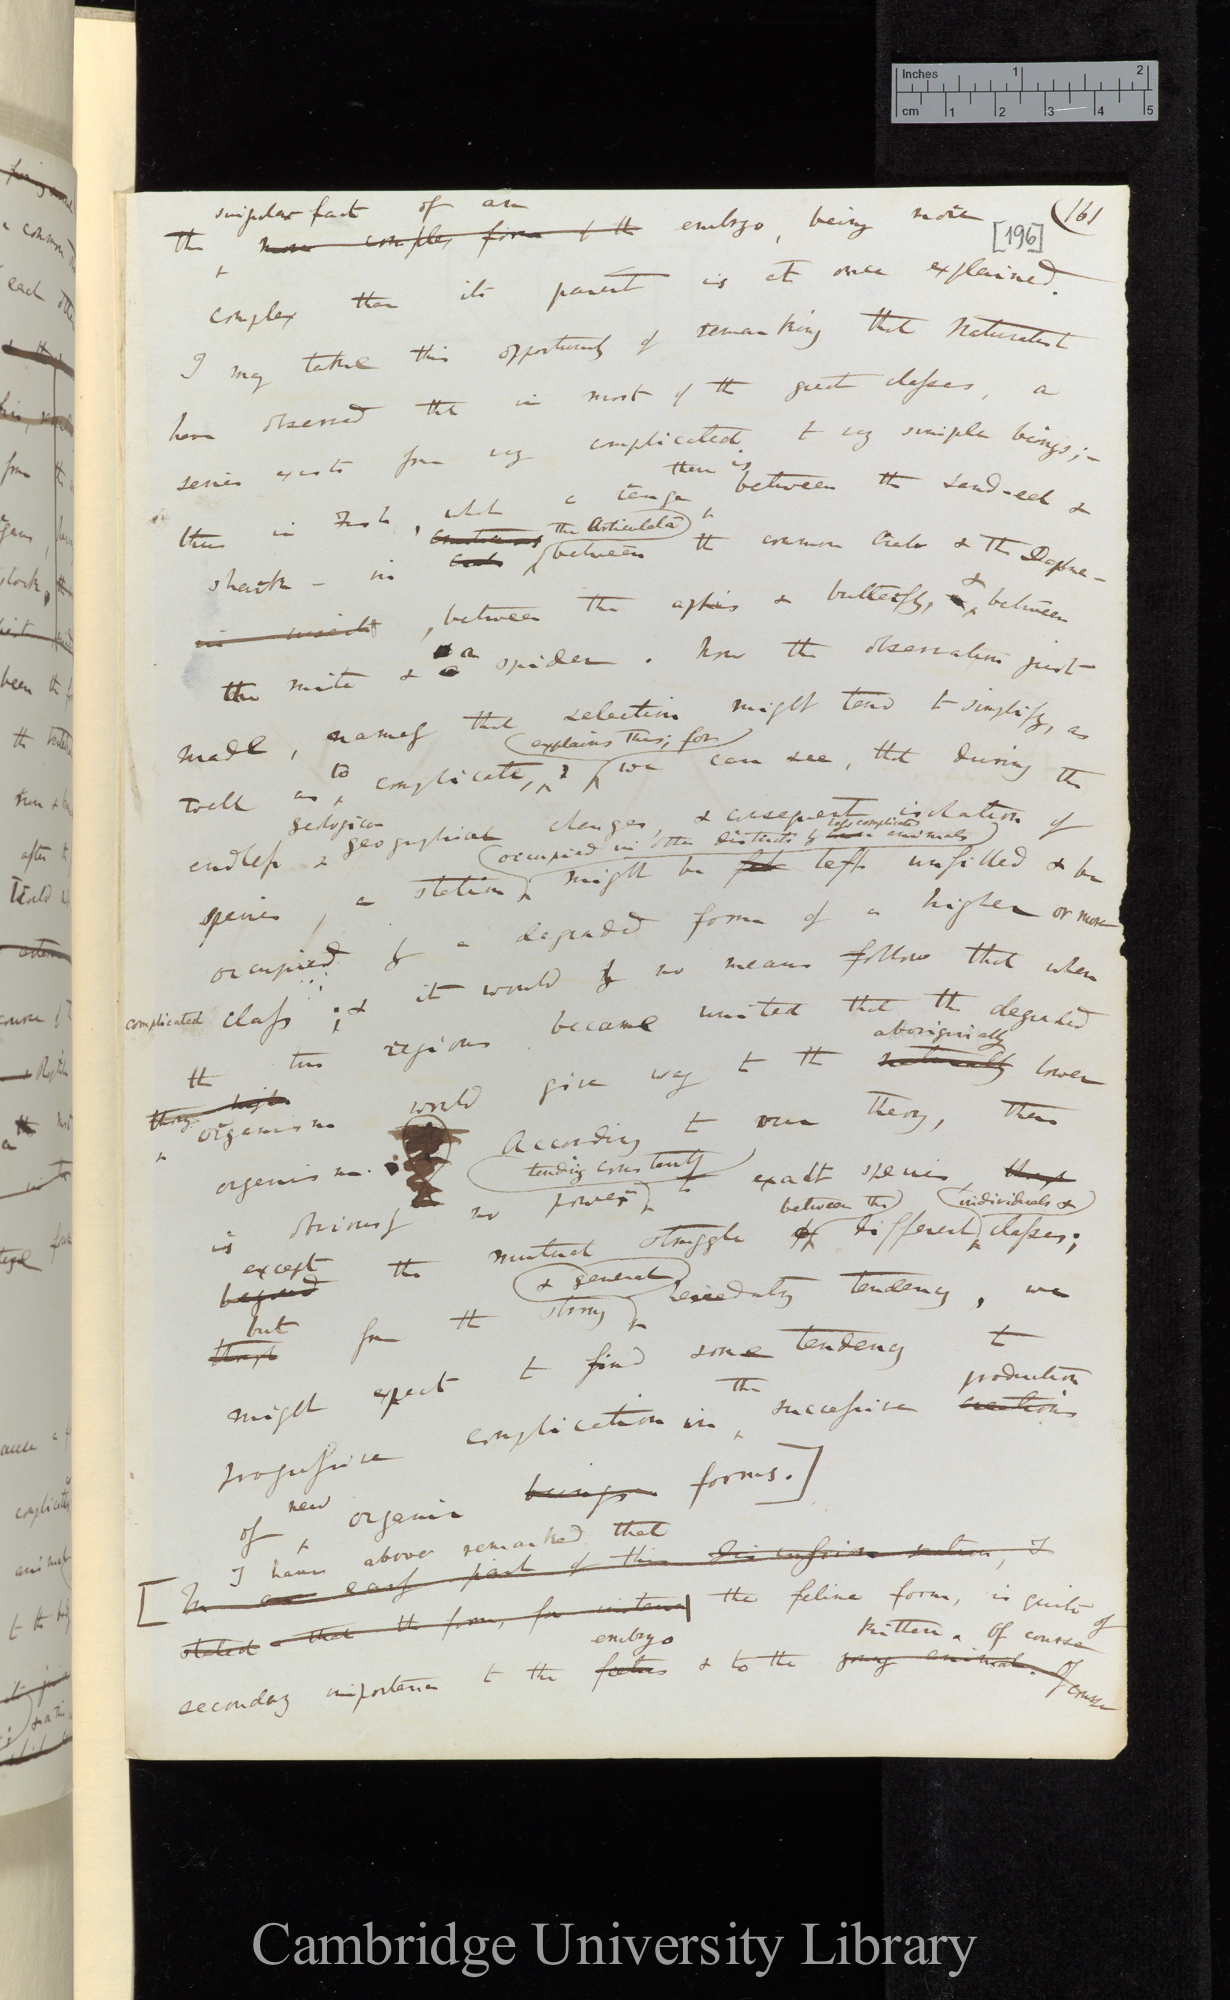 Inches 1 2
cm 1 2 3 4 5
161
[196]
singular fact of an
The more complex form of the embryo, being more
complex than its parent is at once explained.
I may take this opportunity of remarking that Naturalist
have observed that in most of the great classes, a
series exists from very complicated to very simple beings;-
there is
thus in Fish, what a range between the sand-eel &
the Articulata
shark - in between the common crab & the Daphne-
in insects, between the aphis & butterfly, & between
the mite & a spider. Now the observation just
made, namely that selection might tend to simplify, as
explains this; for
well as to complicate, we can see, that during the
geological
endless & geographical changes, & consequent isolation of
occupied in other districts by less complicated animals
species, a station might be left unfilled & be
occupied by a degraded form of a higher or more
complicated class; & it would by no means follow that when
the two regions became united that the degraded
aboriginally
organism would give way to the naturally lower
organism. According to our theory, there
tending constantly
is obviously no power to exalt species
between the individuals &
except the mutual struggle of different classes;
beyond
& general
but from the strong hereditary tendency, we
might expect to find some tendency to
the production
progressive complication in successive creations
of new organic beings forms.]
I have above remarked that
[In an early part of this discussion section, I
stated that the form, for instance the feline form, is quite of
embryo kitten. Of course
secondary importance to the foetus & to the young animal. Of course
Cambridge University Library